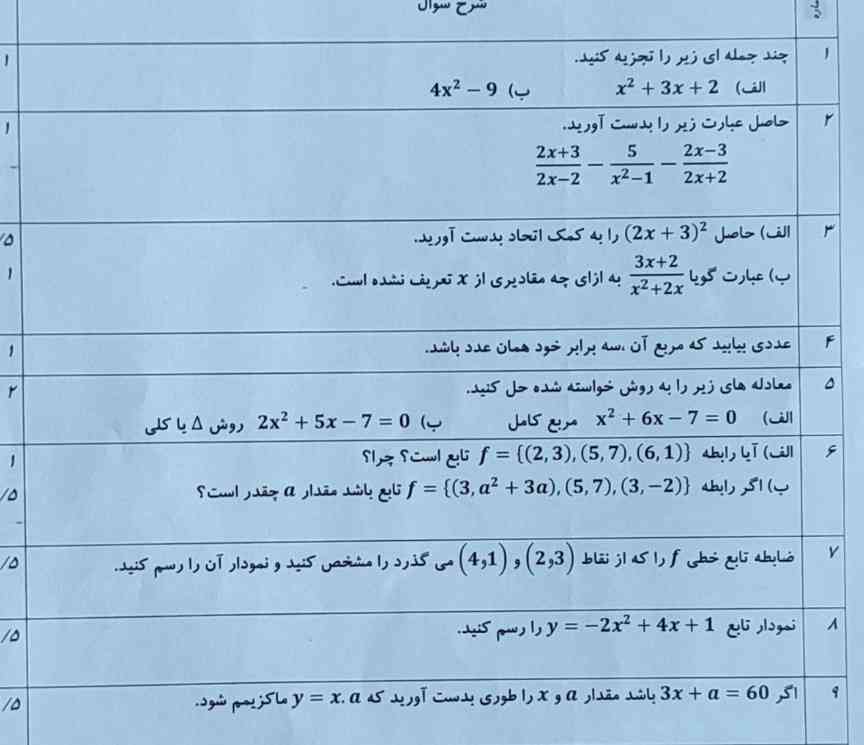 شرح سوال
۱ چند جمله ای زیر را تجزیه کنید. ۱
الف) x² + 3x + 2 ب) 4x² − 9
۲ حاصل عبارت زیر را بدست آورید. ۱
(2x+3)/(2x−2) − 5/(x²−1) − (2x−3)/(2x+2)
۳ الف) حاصل (2x + 3)² را به کمک اتحاد بدست آورید. /۵
ب) عبارت گویا (3x+2)/(x²+2x) به ازای چه مقادیری از x تعریف نشده است. ۱
۴ عددی بیابید که مربع آن، سه برابر خود همان عدد باشد. ۱
۵ معادله های زیر را به روش خواسته شده حل کنید. ۲
الف) x² + 6x − 7 = 0 مربع کامل ب) 2x² + 5x − 7 = 0 روش Δ یا کلی
۶ الف) آیا رابطه f = {(2, 3), (5, 7), (6, 1)} تابع است؟ چرا؟ ۱
ب) اگر رابطه f = {(3, a² + 3a), (5, 7), (3, −2)} تابع باشد مقدار a چقدر است؟ /۵
۷ ضابطه تابع خطی f را که از نقاط (2و3) و (4و1) می گذرد را مشخص کنید و نمودار آن را رسم کنید. /۵
۸ نمودار تابع y = −2x² + 4x + 1 را رسم کنید. /۵
۹ اگر 3x + a = 60 باشد مقدار a و x را طوری بدست آورید که y = x. a ماکزیمم شود. /۵